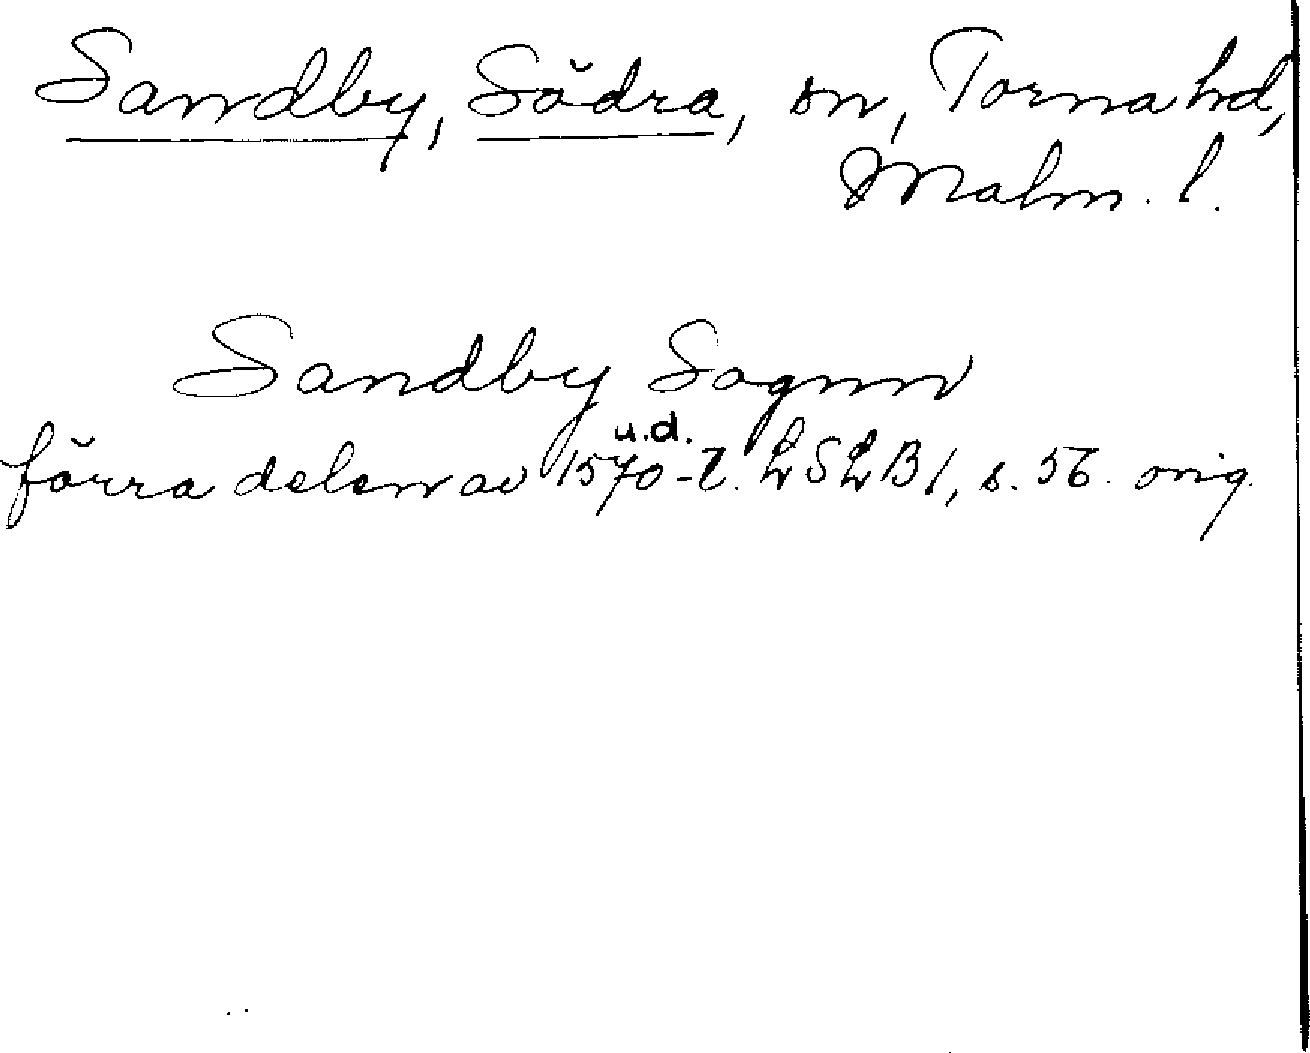 Sandby, Södra, sn, Torna hd,
Malm. l.
Sandby Sognn
u.d.
förra delen av 1570-t. LSLB 1, s. 56. orig.